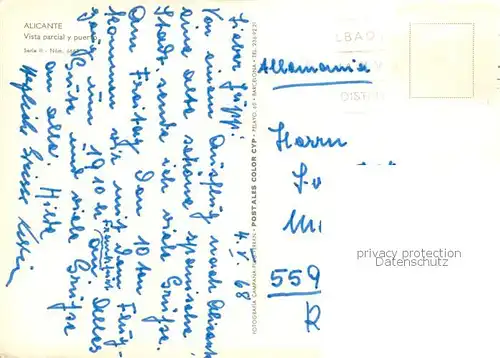 ALICANTE
Vista parcial y puerto
Serie II - Núm.
4. V. 68
Lieber
Von einem Ausflug nach Alicante
eine alte schöne spanische
Stadt sende ich viele Grüße.
Am Freitag den 10 ten
kommen wir mit dem Flug-
zeug um 19 10 h Frankfurt an. Alles
Gute und viele Grüße
an alle. Hilde
Herzliche Grüsse
FOTOGRAFIA CAMPAÑA - POSTALES COLOR CYP - BARCELONA - TEL.
Allemania
Herrn
559
privacy protection
Datenschutz